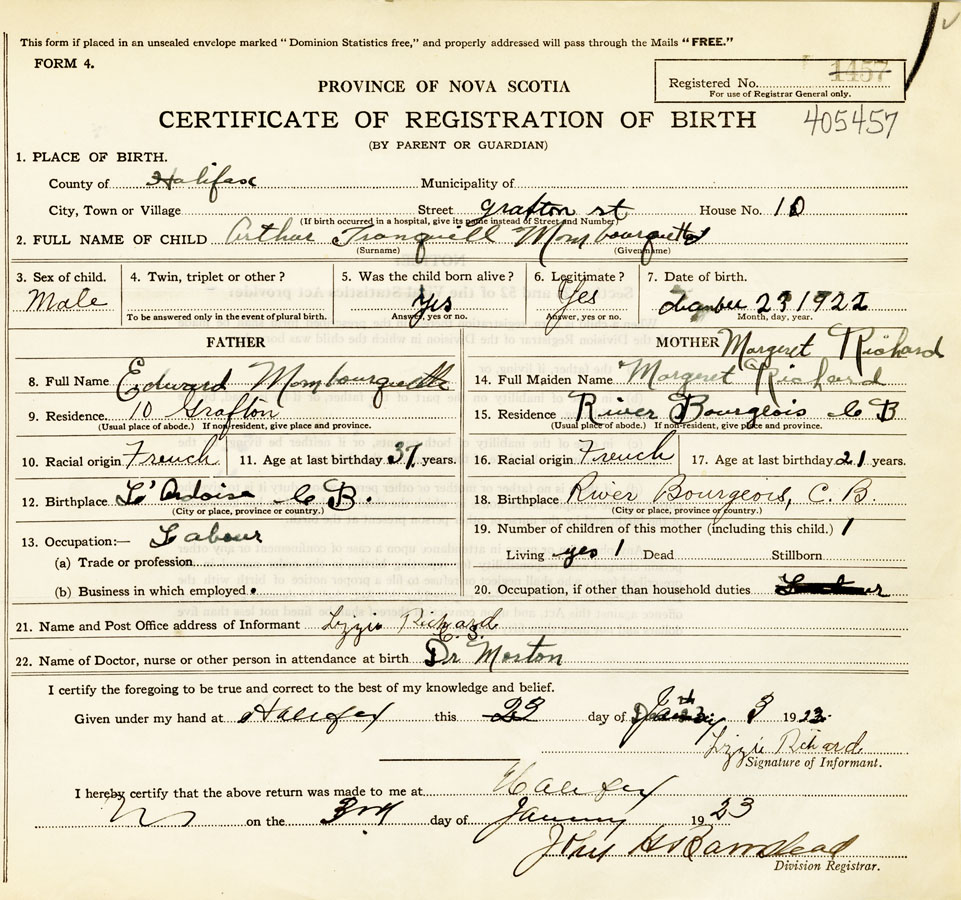 This form if placed in an unsealed envelope marked "Dominion Statistics free," and properly addressed will pass through the Mails "FREE."
FORM 4.
Registered No. 1457
For use of Registrar General only.
PROVINCE OF NOVA SCOTIA
405457
CERTIFICATE OF REGISTRATION OF BIRTH
(BY PARENT OR GUARDIAN)
1. PLACE OF BIRTH.
County of Halifax Municipality of
City, Town or Village Street Grafton st House No. 10
(If birth occurred in a hospital, give its name instead of Street and Number)
2. FULL NAME OF CHILD Arthur Tranquill Mombourquette
(Surname) (Given name)
3. Sex of child. 4. Twin, triplet or other? 5. Was the child born alive? 6. Legitimate? 7. Date of birth.
Male Yes Yes 23 1922
To be answered only in the event of plural birth. Answer, yes or no. Answer, yes or no. Month, day, year.
FATHER MOTHER Margret Richard
8. Full Name Edward Mombourquette 14. Full Maiden Name Margret Richard
9. Residence 10 Grafton 15. Residence River Bourgeois C B
(Usual place of abode.) If non-resident, give place and province. (Usual place of abode.) If non-resident, give place and province.
10. Racial origin French 11. Age at last birthday 37 years. 16. Racial origin French 17. Age at last birthday 21 years.
12. Birthplace L'Ardoise C B. 18. Birthplace River Bourgeois, C. B.
(City or place, province or country.) (City or place, province or country.)
13. Occupation:— Labour 19. Number of children of this mother (including this child.) 1
(a) Trade or profession Living yes 1 Dead Stillborn
(b) Business in which employed 20. Occupation, if other than household duties
21. Name and Post Office address of Informant Lizzie Richard
22. Name of Doctor, nurse or other person in attendance at birth Dr C. S. Morton
I certify the foregoing to be true and correct to the best of my knowledge and belief.
Given under my hand at Halifax this 23 day of 3 1923
Lizzie Richard
Signature of Informant.
I hereby certify that the above return was made to me at Halifax
NS on the 3rd day of January 1923
John H Barnstead
Division Registrar.